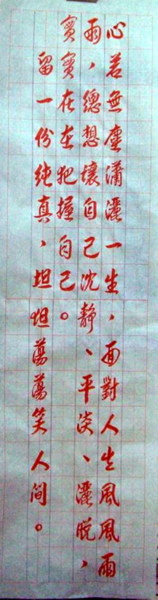 心若無塵瀟灑一生，面對人生風風雨
雨，總想讓自己沈靜、平淡、灑脫，
實實在在把握自己。
留一份純真，坦坦蕩蕩笑人间。